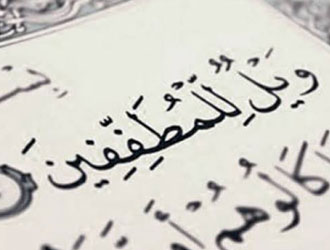 وَيْلٌ لِّلْمُطَفِّفِينَ
كَالُوهُمْ